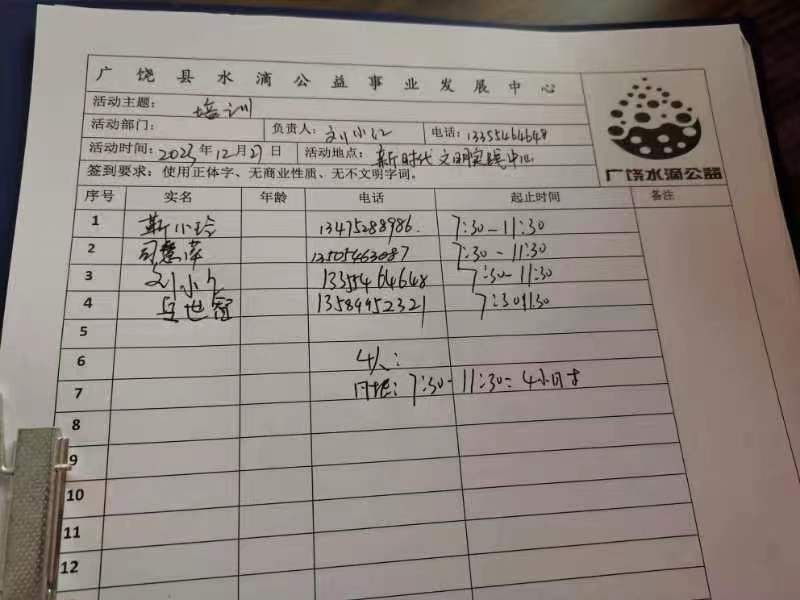 广饶县水滴公益事业发展中心
活动主题： 培训
活动部门： 负责人：刘小 电话：13355464648
活动时间：2023年12月27日 活动地点：新时代文明实践中心
签到要求：使用正体字、无商业性质、无不文明字词。
广饶水滴公益
序号 实名 年龄 电话 起止时间 备注
1 靳小玲 13475288986. 7:30-11:30
2 司慧萍 13505463087 7:30-11:30
3 刘小 13355464648 7:30-11:30
4 世 13589952321 7:3011:30
5
6 4人：
7 7:30-11:30= 4小时
8
9
10
11
12